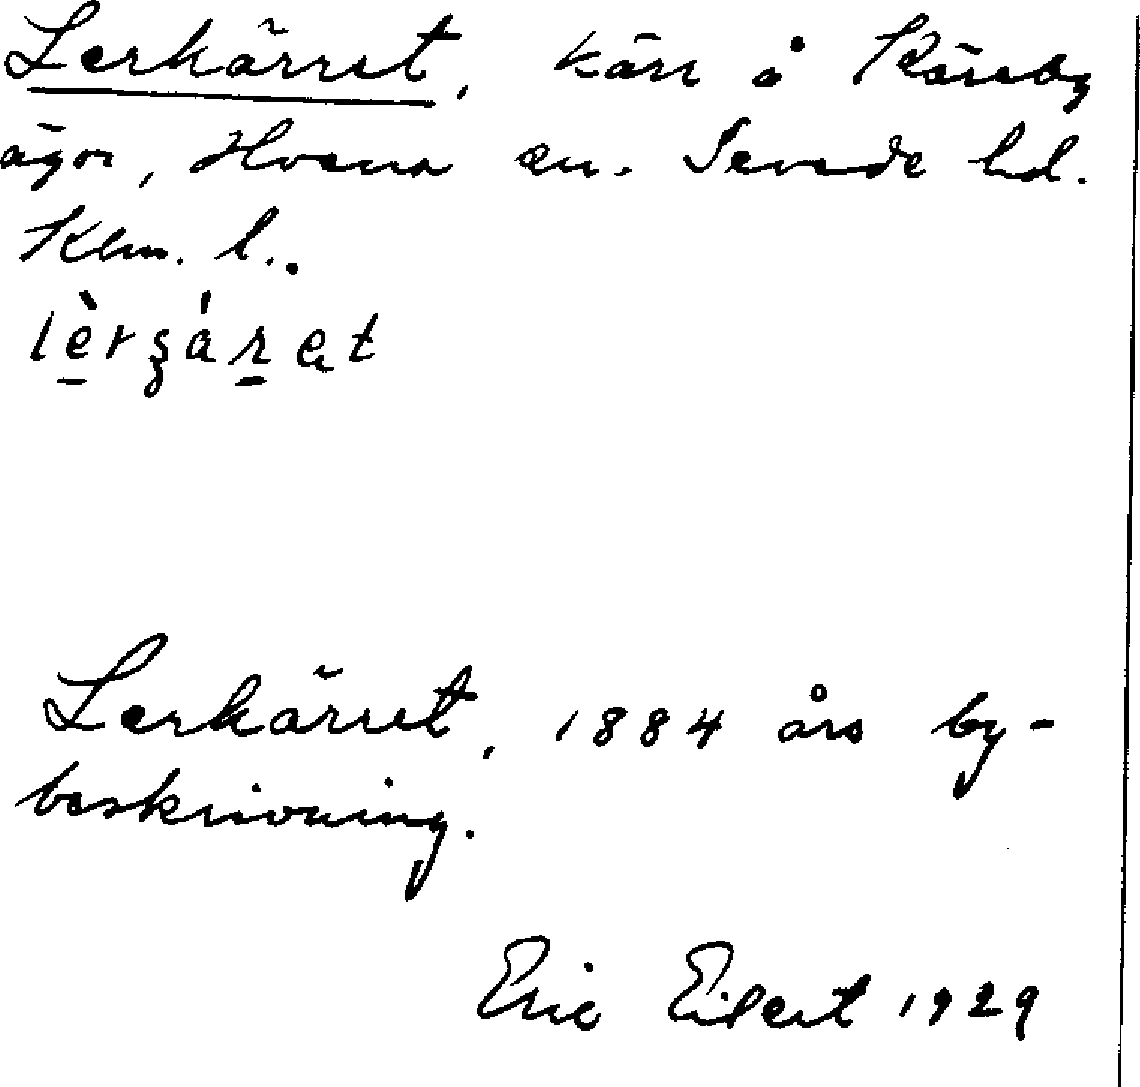 Lerkärret, kärr å Råreby
ägor, Hvena sn. Sevede hd.
Klm. l..
lèrʂáret
Lerkärret, 1884 års by-
beskrivning.
Eric Eilert 1929